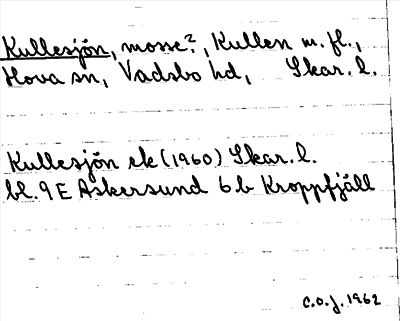 Kullesjön, mosse?, Kullen m.fl.,
Hova sn, Vadsbo hd, Skar. l.
Kullesjön ek (1960) Skar. l.
bl. 9 E Askersund 6 b Kroppfjäll
C.O.J. 1962